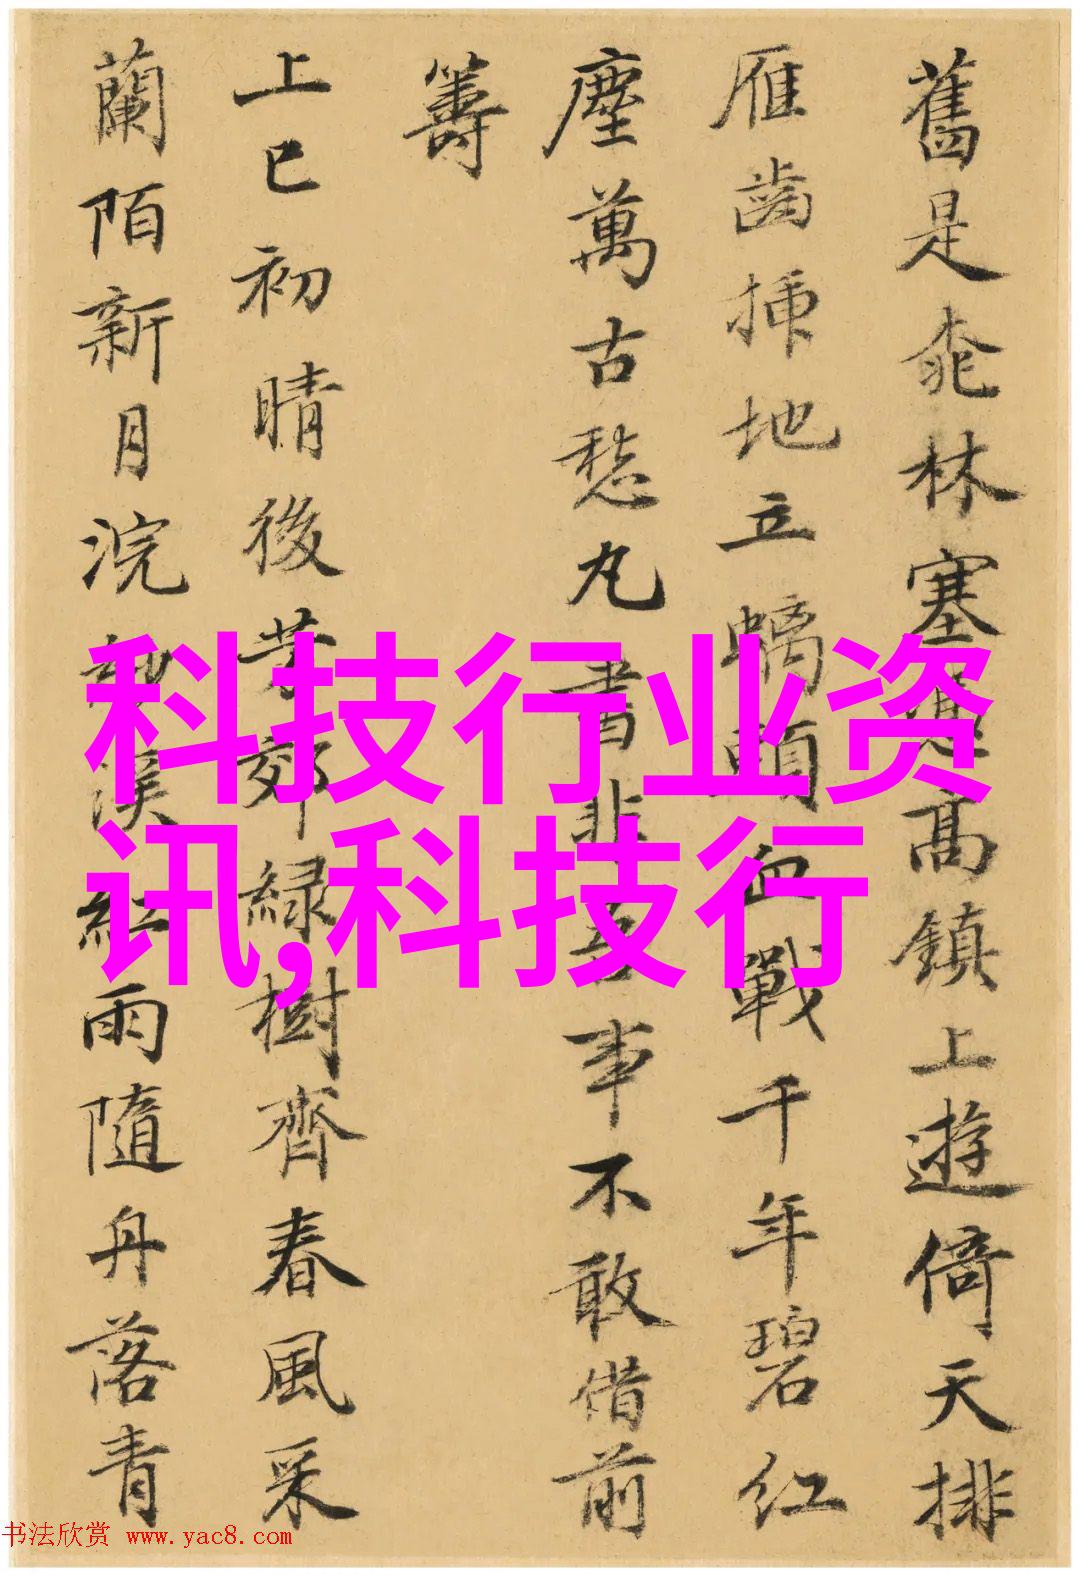 舊是桃林塞高鎮上遊倚天排
雁齒插地立螭頭血戰千年碧紅
塵萬古愁丸書非吾事不敢借前
籌
上巳初晴後芳郊緑樹齊春風采
蘭陌新月浣溪紅雨隨舟落青
科技行业资
讯,科技行
书法欣赏 www.yac8.com